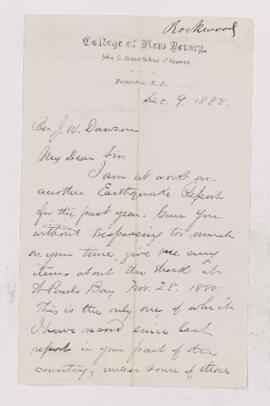 Rockwood
College of New Jersey,
John C. Green School of Science
Princeton, N. J.,
Dec. 9. 1880.
J. W. Dawson
My Dear Sir
I am at work on
another Earthquake Report
for the past year. Can you
without trespassing too much
on your time, give me any
items about the shock at
St Pauls Bay Nov. 28. 1880.
This is the only one of which
I have record since last
report in your part of the
country, unless some of these